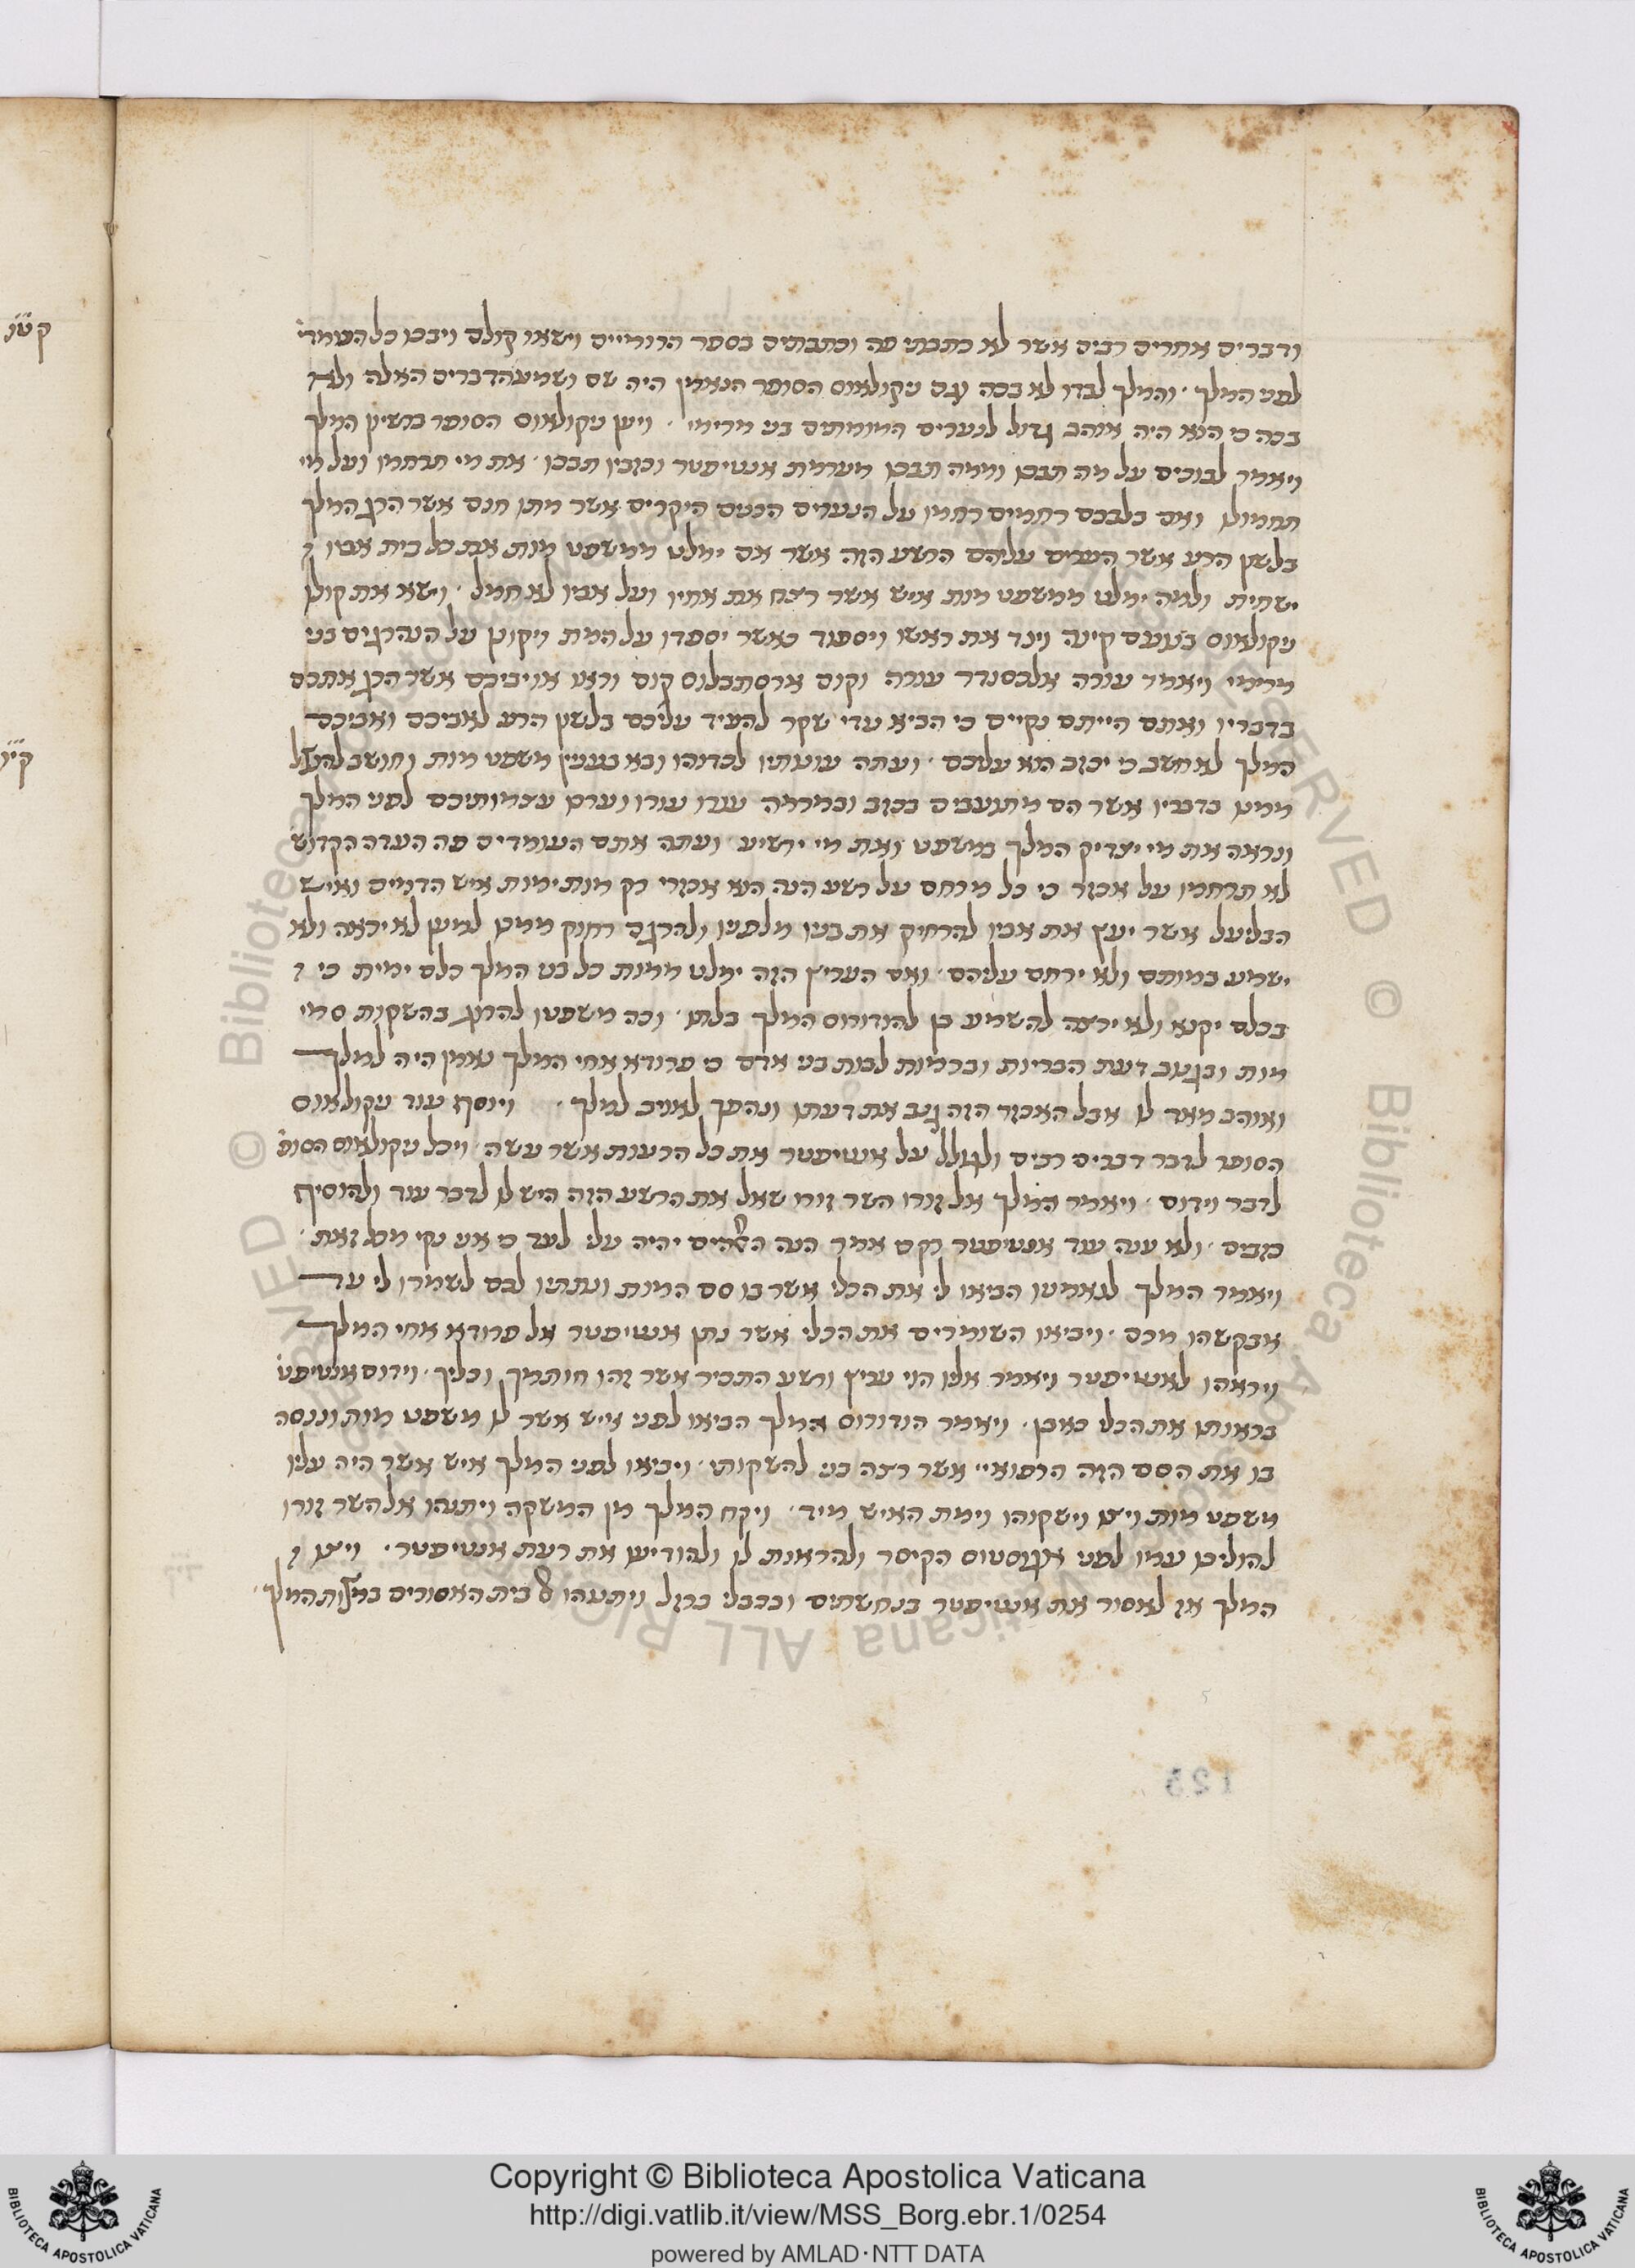 ודברים אחרים רבים אשר לא כתבתי פה וכתבתים בספר הרומיים וישאו קולם ויבכו כל העומדי'
לפני המלך. והמלך לבדו לא בכה גם ניקולאוס הסופר הנאמן היה שם ושמע הדברים האלה ולא
בכה כי הוא היה אוהב גדול לנערים המומתים בני מרימי. ויען ניקולאוס הסופר ברשיון המלך
ויאמר לבוכים על מה תבכו וממה תבכו מערמת אנטיפטר וכזביו תבכו. את מי תרחמו ועל מי
תחמולו ואם בלבבכם רחמים רחמו על הנערים היקרים אשר מתו חנם אשר הרג המלך
בלשון הרע אשר העבים עליהם הרשע הזה אשר אם ימלט ממשפט מות את כל בית אביו
ישחית ולמה ימלט ממשפט מות איש אשר רצח את אחיו ועל אביו לא חמל. וישא את קולו
ניקולאוס בנועם קינה וינד את ראשו ויספוד כאשר יספדו על המת ויקונן על הנהרגים בני
מרימי ויאמר עורה אלכסנדר עורה וקום ארסתבלוס קום וראו אויביכם אשר הרג אתכם
בדבריו ואתם הייתם נקיים כי הביא עדי שקר להעיד עליכם בלשון הרע לאביכם ואביכם
המלך לא חשב כי יכזב הוא עליכם. ועתה עונותיו לכדוהו ובא בענין משפט מות וחושב להנצל
ממנו בדבריו אשר הם מתועבים בכזב ובמרמה עורו עורו וערכו עצמותיכם לפני המלך
ונראה את מי יצדיק המלך במשפט ואת מי ירשיע ועתה אתם העומדים פה העדה הקדוש'
לא תרחמו על אכזר כי כל מרחם על רשע הנה הוא אכזרי רק מות ימות איש הדמים ואיש
הבליעל אשר יעץ את אביו להרחיק את בניו מלפניו ולהרגם רחוק ממנו למען לא יראה ולא
ישמע במותם ולא ירחם עליהם. ואם העריץ הזה ימלט ממות כל בני המלך כלם ימית כי
בכלם יקנא ולא ירצה להשמיע בן להורודוס המלך בלתו. וכה משפטו להרוג בהשקות סמי
מות ובגנוב דעת הבריות וברמות לבות בני אדם כי פרודא אחי המלך נאמן היה למלך
ואוהב מאד לו אבל האכזר הזה גנב את דעתו ונהפך לאויב למלך. ויוסף עוד ניקולאוס
הסופר לדבר דברים רבים ולגולל על אנטיפטר את כל הרעות אשר עשה. ויכל ניקולאוס הסופ'
לדבר וידום. ויאמר המלך אל זורו השר זורו שאל את הרשע הזה היש לו לדבר עוד ולהוסיף
כזבים. ולא ענה עוד אנטיפטר רק אמר הנה האלהים יהיה עלי לעד כי אני נקי מכל זאת.
ויאמר המלך לנאמניו הביאו לי את הכלי אשר בו סם המות ונתתיו לכם לשמרו לי עד
אבקשהו מכם. ויביאו השומרים את הכלי אשר נתן אנטיפטר אל פרודא אחי המלך
ויראהו לאנטיפטר ויאמר אליו הוי עריץ ורשע התכיר אשר זהו חותמך וכליך. וידום אנטיפט'
בראותו את הכלי כאבן. ויאמר הורודוס המלך הביאו לפני איש אשר לו משפט מות וננסה
בו את הסם הזה אשר רצה בני להשקותי. ויביאו לפני המלך איש אשר היה עליו
משפט מות ויצו וישקוהו וימת האיש מיד. ויקח המלך מן המשקה ויתנהו אל השר זורו
להוליכו עמו לפני אגוסטוס הקיסר ולהראות לו ולהודיעו את רעת אנטיפטר. ויצו
המלך אז לאסור את אנטיפטר בנחשתים ובכבלי ברזל ויתנהו אל בית האסורים במצות המלך.
קט"ו
קי"ו
123
Copyright © Biblioteca Apostolica Vaticana
http://digi.vatlib.it/view/MSS_Borg.ebr.1/0254
powered by AMLAD·NTT DATA
BIBLIOTECA APOSTOLICA VATICANA
BIBLIOTECA APOSTOLICA VATICANA